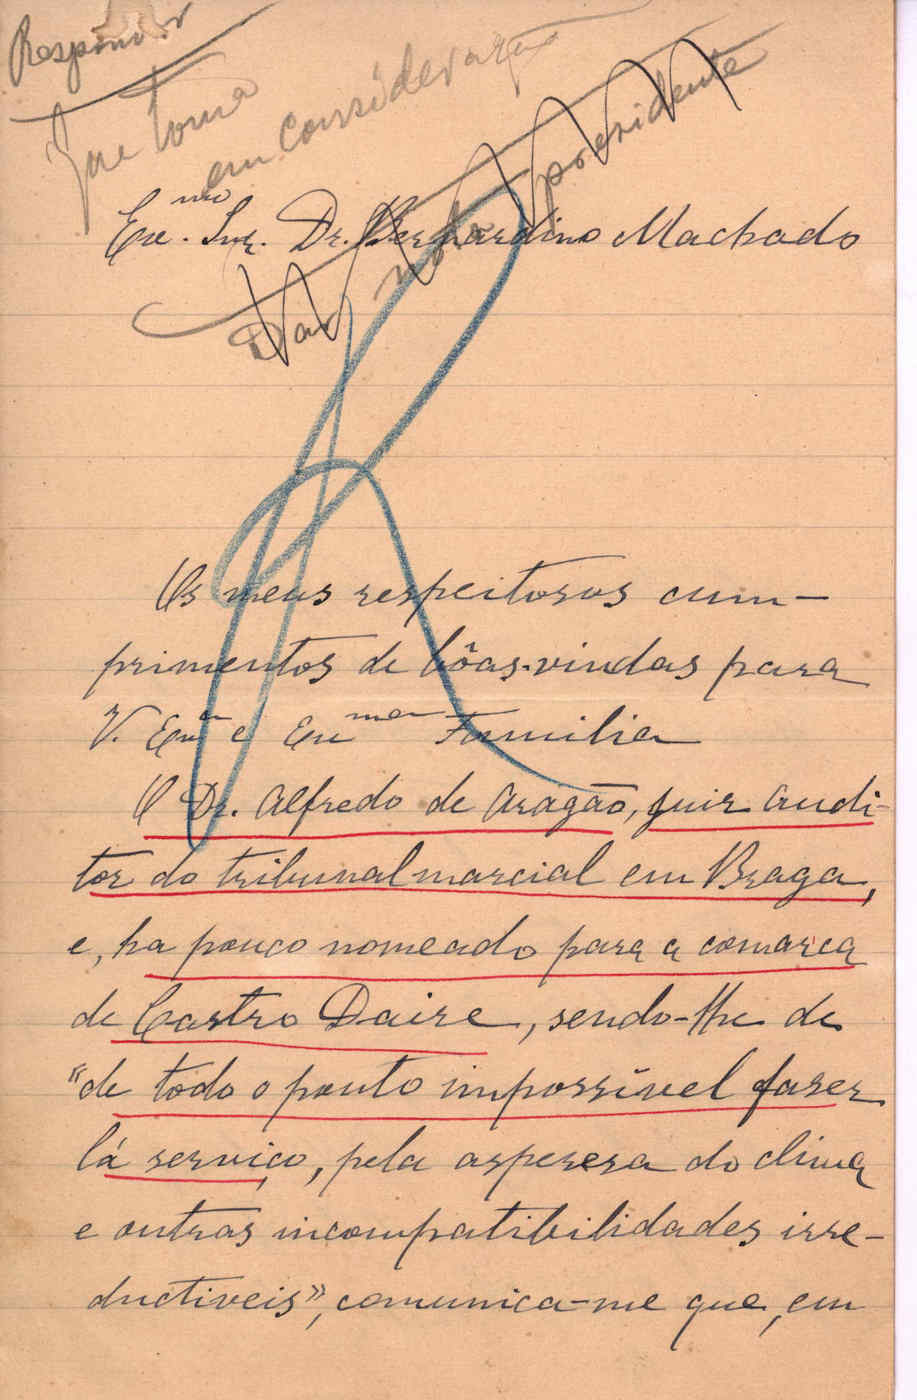 Responder
Que toma
em consideração
Dar nota presidente
Exmo. Snr. Dr. Bernardino Machado
Os meus respeitosos cum-
primentos de bôas-vindas para
V. Exa e Exma Familia
O Dr. Alfredo de Aragão, juiz audi-
tor do tribunal marcial em Braga,
e, ha pouco nomeado para a comarca
de Castro Daire, sendo-lhe de
"de todo o ponto impossível fazer
lá serviço, pela aspereza do clima
e outras incompatibilidades irre-
ductiveis", comunica-me que, em